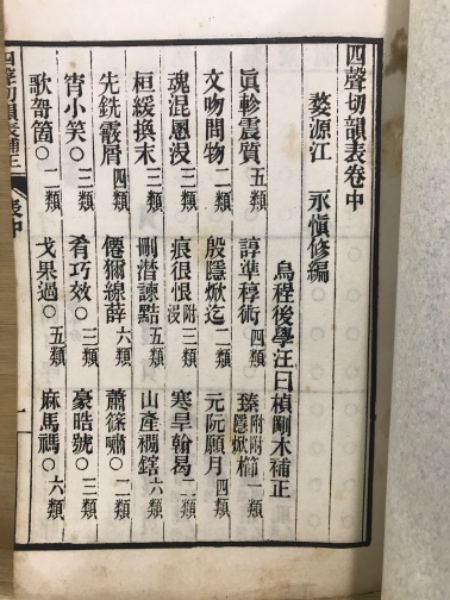 四聲切韻表卷中
婺源江 永慎修編
烏程後學汪曰楨剛木補正
眞軫震質 五類 諄準稕術 四類 臻隱附焮附櫛 一類
文吻問物 二類 殷隱焮迄 二類 元阮願月 四類
魂混慁没 三類 痕很恨没附 三類 寒旱翰曷 二類
桓緩換末 三類 刪潸諫黠 五類 山產襉鎋 六類
先銑霰屑 四類 僊獮線薛 六類 蕭篠嘯○ 二類
宵小笑○ 三類 肴巧效○ 三類 豪晧號○ 三類
歌哿箇○ 二類 戈果過○ 五類 麻馬禡○ 六類
四聲切韻表補正 表中 一